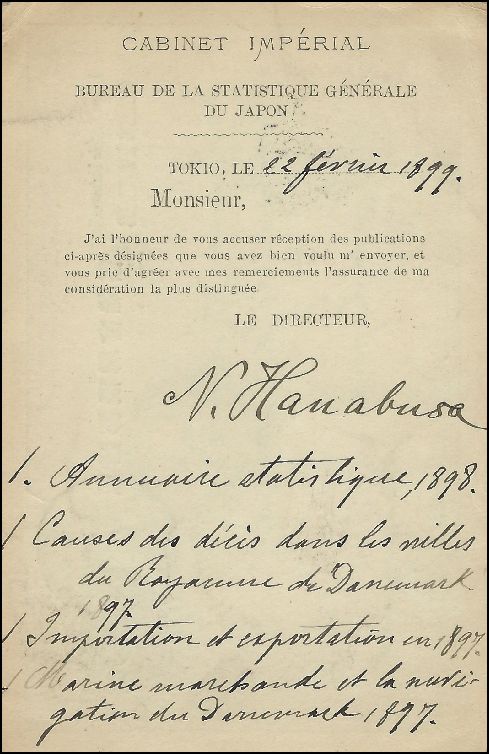 CABINET IMPÉRIAL
BUREAU DE LA STATISTIQUE GÉNÉRALE
DU JAPON
TOKIO, LE 22 février 1899.
Monsieur,
J'ai l'honneur de vous accuser réception des publications
ci-après désignées que vous avez bien voulu m' envoyer, et
vous prie d'agréer avec mes remerciements l'assurance de ma
considération la plus distinguée.
LE DIRECTEUR,
N. Hanabusa
1. Annuaire statistique, 1898.
1 Causes des décès dans les villes
du Royaume de Danemark
1897.
1 Importation et exportation en 1897.
1 Marine marchande et la navi-
gation du Danemark 1897.